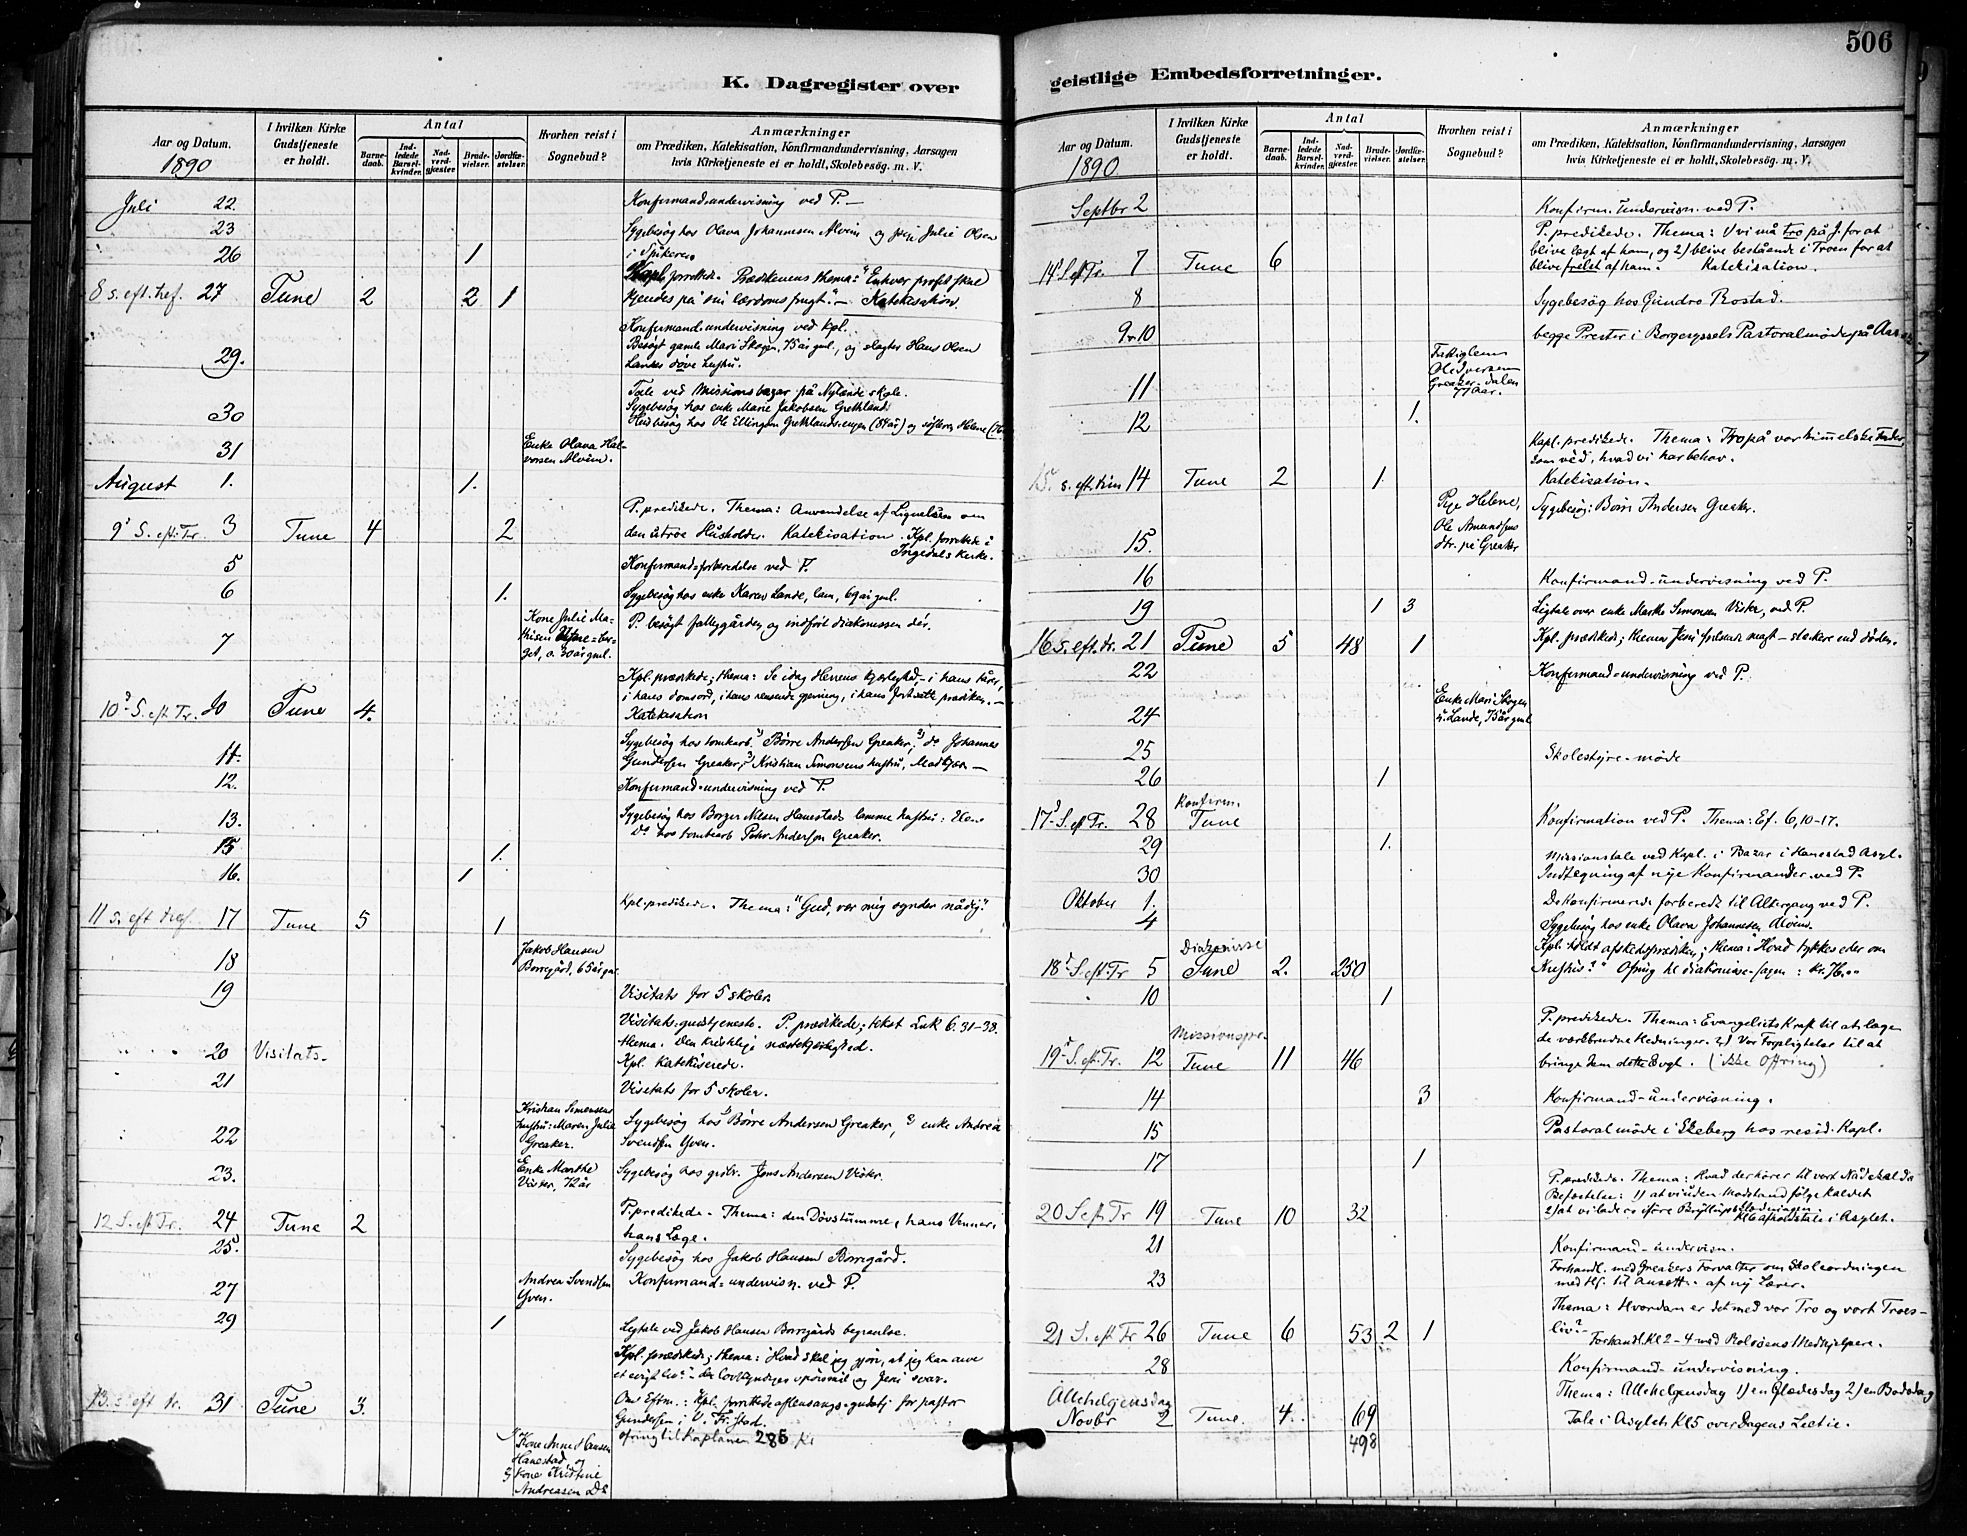 506
K. Dagregister over
geistlige Embedsforretninger.
Aar og Datum.
1890
I hvilken Kirke Gudstjeneste er holdt.
Antal
Barnedaab.
Indledede Barselkvinder.
Nadverdgjæster.
Brudevielser.
Jordfæstelser.
Hvorhen reist i Sognebud?
Anmærkninger
om Prædiken, Katekisation, Konfirmandundervisning, Aarsagen
hvis Kirketjeneste ei er holdt, Skolebesøg. m. V.
Juli 22 Konfirmandundervisning ved P. —
23 Sygebesøg hos Olava Johannesen Alvim og pige Julie Olsen
26 1
8 s. eft. tref. 27 Tune 2 2 1 Kapl. prædiked. Prædikenens thema: "Enhver profet skal
kjendes på sin lærdoms frugt." — Katekisation.
Konfirmand-undervisning ved kpl.
29. Besøgt gamle Mari Skogen, 75 år gml., og slagter Hans Olsen
Landes døve hustru.
Tale ved Missionsbazar på Nylænde skole.
30 Sygebesøg hos enke Marie Jakobsen Grethland
31 Enke Olava Halvorsen Alvim.
August 1. 1.
9d S. eft. Tr. 3 Tune 4 2 P. predikede. Thema: Anvendelse af Lignelsen om
den utroe Husholder. Katekisation. Kpl. prædiked i
Ingedals kirke.
5 Konfirmand-forberedelse ved P.
6 1. Sygebesøg hos enke Karen Lande, lam, 69 år gml.
7 Kone Julie P. besøgt fattiggården og indført diakonissen der.
10d S. eft Tr. 10 Tune 4. Kpl. prædikede; thema: Se idag Herrens kjærlighed, — i hans tårer,
i hans domsord, i hans rensende gjerning, i hans fortsatte prædiken. —
Katekisation
11. Sygebesøg hos tomtearb. 1) Børre Andersen Greaker, 2) do Johannes
Gundersen Greaker, 3) Kristian Simonsens hustru,
12. Konfirmand-undervisning ved P.
13. Sygebesøg hos Borger Nilsen Hanestads lamme hustru:
do hos tomtearb. Peter Andersen Greaker.
15 1.
16. 1
11 s. eft tref. 17 Tune 5 1 Kpl. predikede. Thema: "Gud, vær mig synder nådig."
18 Jakob Hansen Borregård, 65 år gml.
19 Visitats for 5 skoler.
20 Visitats- Visitats-gudstjeneste. P. prædikede; tekst Luk 6. 31-38.
Thema: Den kristelige næstekjærlighed.
Kpl. katekiserede.
21 Visitats for 5 skoler.
22 Kristian Simonsens hustru: Maren Julie Greaker. Sygebesøg hos 1) Børre Andersen Greaker, 2) enke Andrea
Svendsen Yven.
23. Enke Marthe Visker, 72 år Sygebesøg hos grdbr. Jens Andersen Visker.
12 S. eft Tr. 24 Tune 2 P. predikede. Thema: den Døvstumme, hans Venner,
hans Læge.
25. Sygebesøg hos Jakob Hansen Borregård.
27 Andrea Svendsen Yven. Konfirmand-undervisn. ved P.
29 1 Ligtale ved Jakob Hansen Borregårds begravelse.
13. s. eft tr. 31 Tune 3. Kpl. prædikede; thema: Hvad skal jeg gjøre, at jeg kan arve
et evigt liv? — den lovkyndiges spørsmål og Jesu svar.
Om Eftm.: Kpl. prædikede aftensangs-gudstj. for pastor
Gundersen i V. Fr.stad.
Ofring til Kaplanen 285 Kr
1) Kone Anne Hansen Hanestad og
2) Kone Kristine Andreasen Do
Aar og Datum.
1890
I hvilken Kirke Gudstjeneste er holdt.
Antal
Barnedaab.
Indledede Barselkvinder.
Nadverdgjæster.
Brudevielser.
Jordfæstelser.
Hvorhen reist i Sognebud?
Anmærkninger
om Prædiken, Katekisation, Konfirmandundervisning, Aarsagen
hvis Kirketjeneste ei er holdt, Skolebesøg. m. V.
Septbr 2 Konfirm. undervisn. ved P.
14d S. eft Tr. 7 Tune 6 P. predikede. Thema: 1) vi må tro på J. for at
blive lægt af ham, og 2) blive bestående i Troen for at
blive frelst af ham. Katekisation.
8 Sygebesøg hos Gundro Rostad.
9 & 10 begge Prester i Borgesyssels Pastoralmøde på
11 Greaker-dalen 77 Aar.
12 1.
15. s. eft. trin 14 Tune 2 1. Kapl. predikede. Thema: Tro på vor himmelske Fader,
som véd, hvad vi har behov.
Katekisation.
15. Pige Helene, Ole Amundsens dtr. på Greaker Sygebesøg: Børre Andersen Greaker.
16 Konfirmand-undervisning ved P.
19 1 3 Ligtale over enke Marthe Simonsen Visker, ved P.
16 s. eft. tr. 21 Tune 5 48 1 Kpl. prædikede; thema: Jesu frelsende magt — stærkere end døden.
22 Konfirmand-undervisning ved P.
24 Enke Mari Skogen u. Lande, 75 år gml
25 Skolestyre-møde
26 1
17d S. eft Tr. 28 Konfirm. Tune Konfirmation ved P. Thema: Ef. 6, 10-17.
29 1. Missionstale ved Kapl. i Bazar i Hanestad Asyl.
30 Indtegning af nye Konfirmander ved P.
Oktober 1. De konfirmerede forberedt til Altergang ved P.
4 Sygebesøg hos enke Olava Johannesen Alvim.
18d S. eft Tr 5 Diakonisse Tune 2. 250 Kpl. holdt afskedsprædiken; thema: Hvad tykkes eder om
Kristus? Ofring til diakonisse-sagen:
10 1
19d S. eft Tr. 12 Missionspr. Tune 11 46 P. predikede. Thema: Evangeliets Kraft til at læge
de værkbrudne Hedninger. 2) Vor Forpligtelse til at
bringe dem dette Evgl. (ikke Ofring)
14 3 Konfirmand-undervisning.
15 Pastoralmøde i Skeberg hos resid. Kapl.
17 1
20 S eft Tr 19 Tune 10 32 P. predikede. Thema: Hvad der hører til vort Nådekalds
Befæstelse: 1) at vi uden Modstand følge kaldet
2) at vi lade os iføre Bryllupsklædningen.
Kl 6 afholdt tale i Asylet.
21 Konfirmand-undervisn.
23 Forhandl. med Greakers Forvalter om Skoleordningen
med Hf. til Ansætt. af ny Lærer.
21 S. eft Tr 26 Tune 6 53 2 1 Thema: Hvordan er det med vor Tro og vort Troesliv?
Forhandl. Kl 2-4 med Rolvsøens Medhjelpere.
28 Konfirmand-undervisning.
Allehelgensdag
Novbr 2 Tune. 4. 69 Thema: Allehelgensdag 1) en Glædesdag 2) en Bodsdag
Tale i Asylet Kl 5 over Dagens Lectie.
498